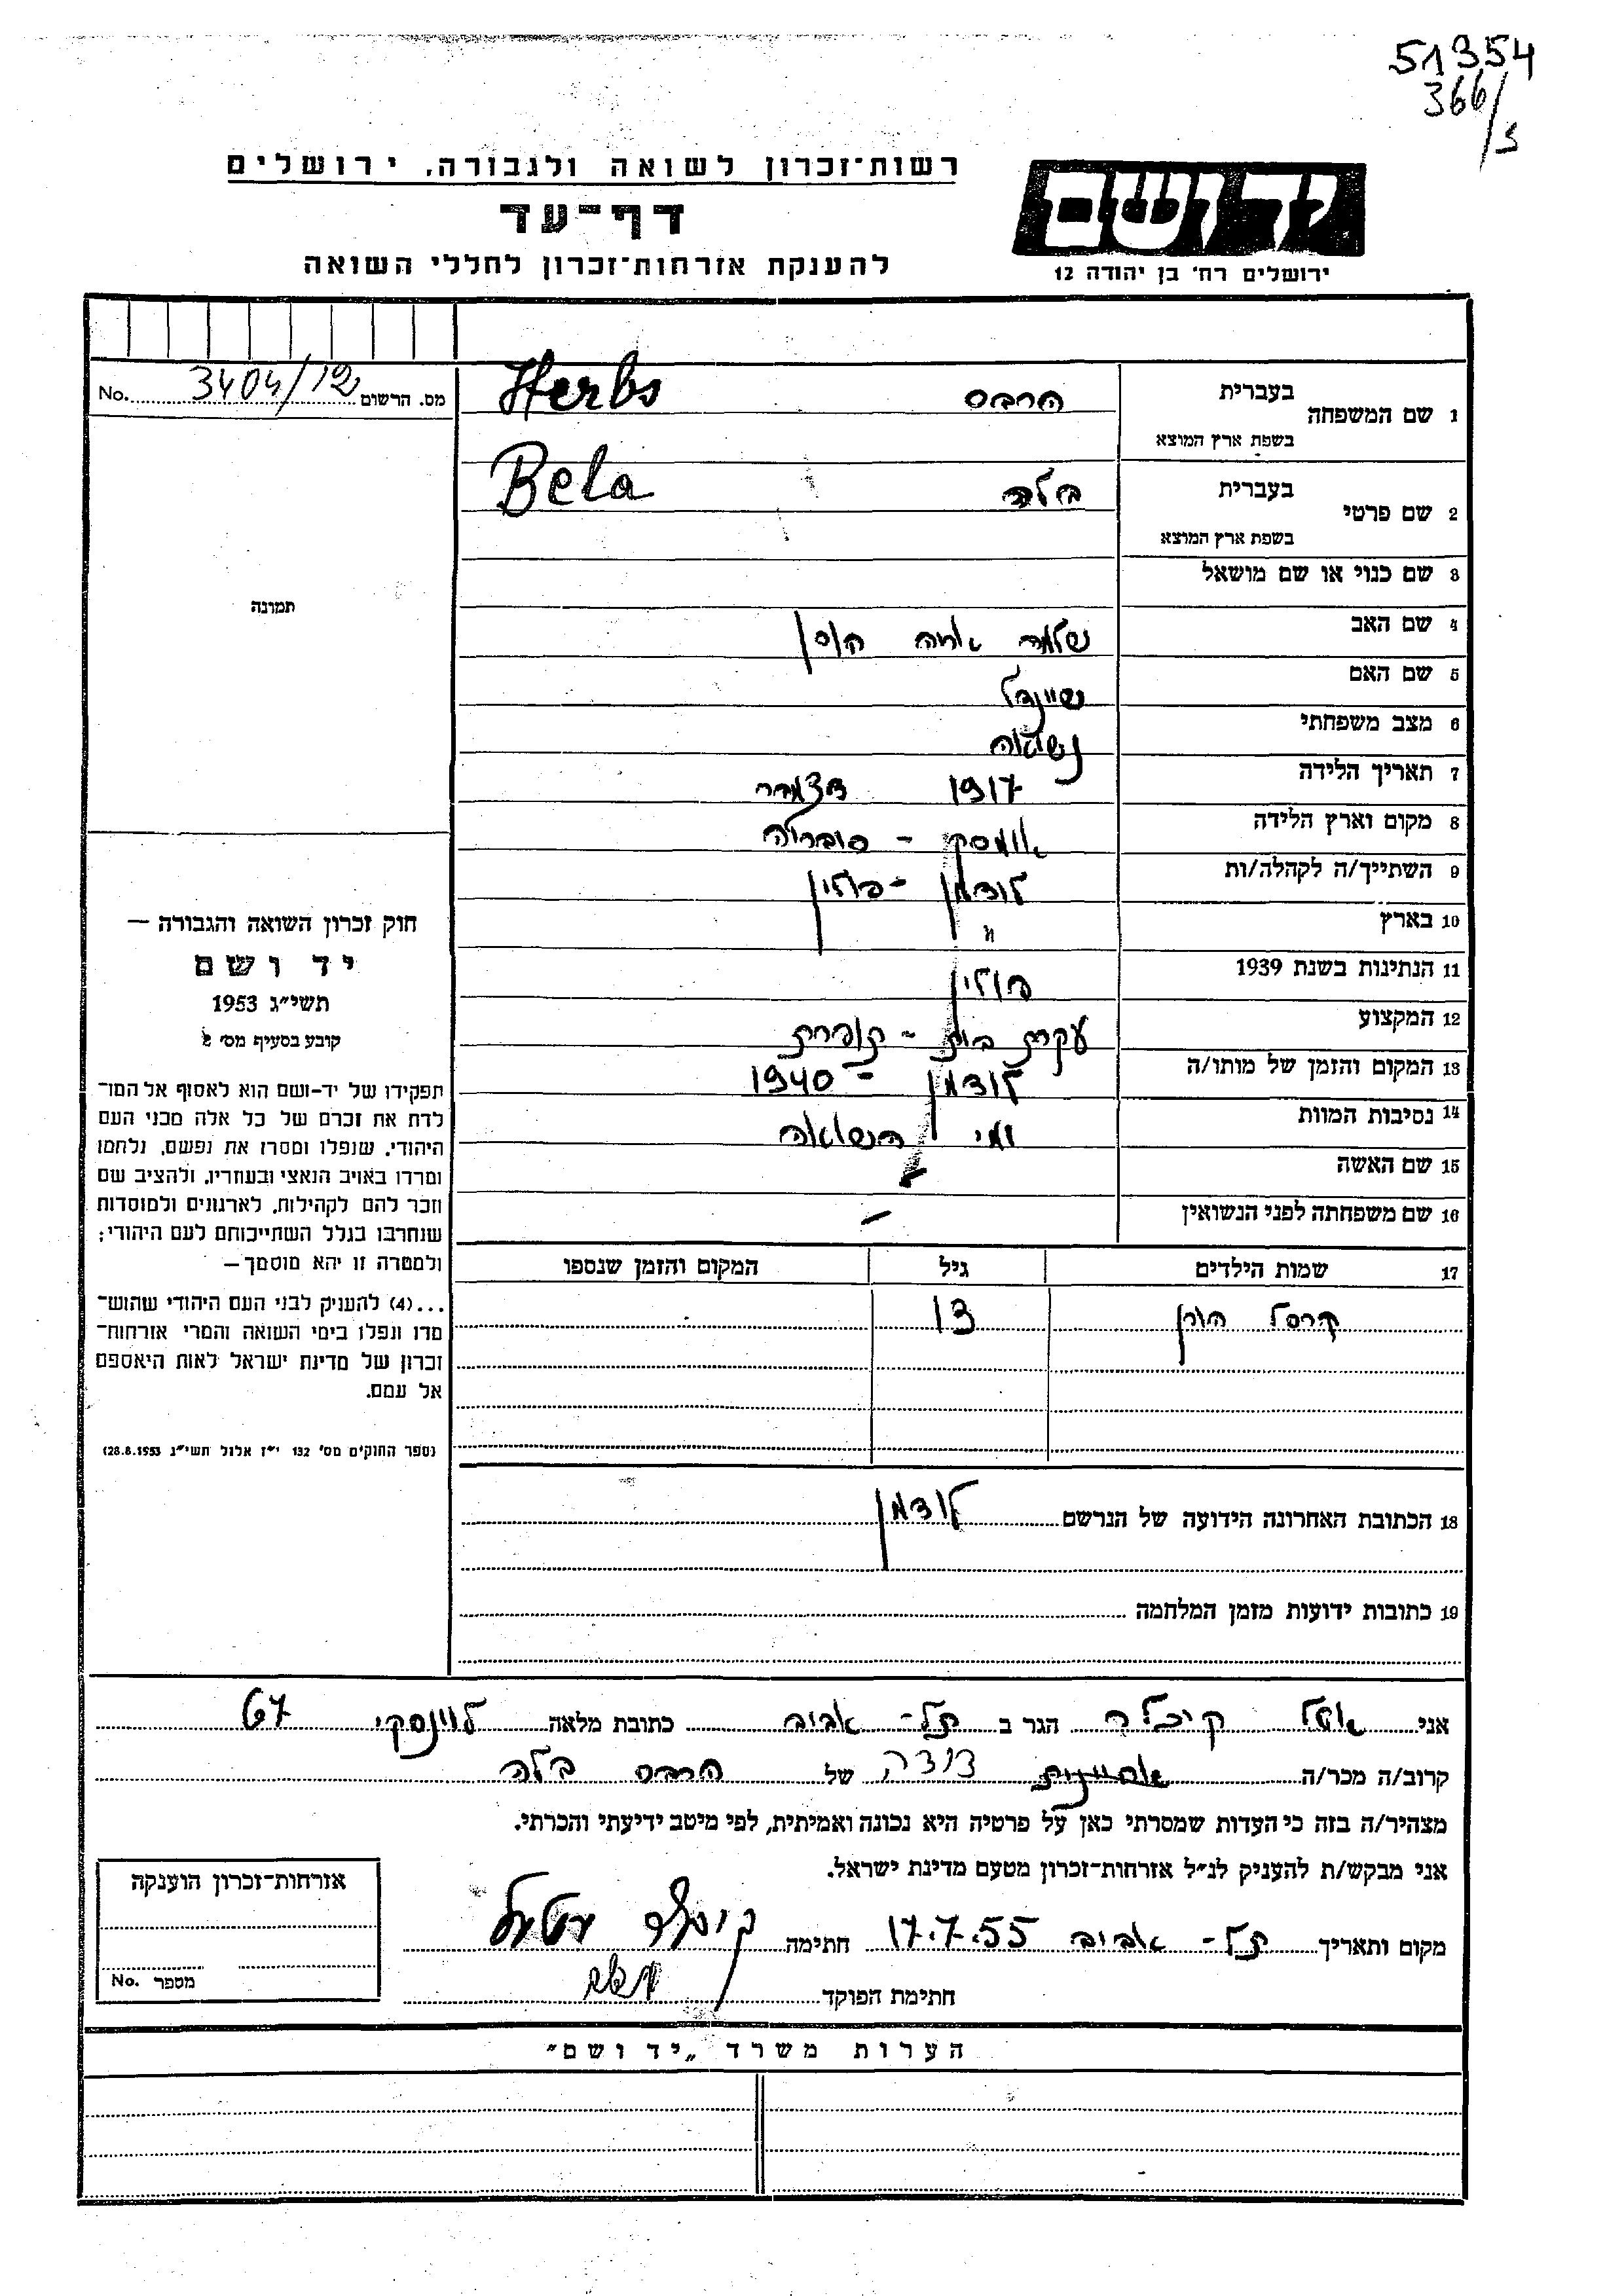 51354
366/
רשות־זכרון לשואה ולגבורה, ירושלים
דף־עד
להענקת אזרחות־זכרון לחללי השואה
יד ושם
ירושלים רח' בן יהודה 12
מס. הרשום 3404/12 No.
1 שם המשפחה בעברית הרבס Herbs
בשפת ארץ המוצא
2 שם פרטי בעברית בלה Bela
בשפת ארץ המוצא
3 שם כנוי או שם מושאל
4 שם האב שלמה אריה
5 שם האם שיינדל
6 מצב משפחתי נשואה
7 תאריך הלידה 1917 דצמבר
8 מקום וארץ הלידה אומסק -
9 השתייך/ה לקהלה/ות לודמן - פולין
10 בארץ "
11 הנתינות בשנת 1939 פולין
12 המקצוע עקרת בית - תופרת
13 המקום והזמן של מותו/ה לודמן - 1940
14 נסיבות המוות ימי השואה
15 שם האשה
16 שם משפחתה לפני הנשואין -
17 שמות הילדים גיל המקום והזמן שנספו
הורן 13
18 הכתובת האחרונה הידועה של הנרשם לודמן
19 כתובות ידועות מזמן המלחמה
תמונה
חוק זכרון השואה והגבורה —
יד ושם
תשי״ג 1953
קובע בסעיף מס' 2
תפקידו של יד-ושם הוא לאסוף אל המו־
לדת את זכרם של כל אלה מבני העם
היהודי, שנפלו ומסרו את נפשם, נלחמו
ומרדו באויב הנאצי ובעוזריו, ולהציב שם
וזכר להם לקהילות, לארגונים ולמוסדות
שנחרבו בגלל השתייכותם לעם היהודי;
ולמטרה זו יהא מוסמך —
...(4) להעניק לבני העם היהודי שהוש־
מדו ונפלו בימי השואה והמרי אזרחות־
זכרון של מדינת ישראל לאות היאספם
אל עמם.
(ספר החוקים מס' 132 י״ז אלול תשי״ג 28.8.1953)
אני הגר ב תל-אביב כתובת מלאה לוינסקי 67
קרוב/ה מכר/ה דודה של הרבס בלה
מצהיר/ה בזה כי העדות שמסרתי כאן על פרטיה היא נכונה ואמיתית, לפי מיטב ידיעתי והכרתי.
אני מבקש/ת להעניק לנ״ל אזרחות-זכרון מטעם מדינת ישראל.
מקום ותאריך תל-אביב 17.7.55 חתימה
חתימת הפוקד
אזרחות-זכרון הוענקה
מספר No.
הערות משרד „יד ושם״